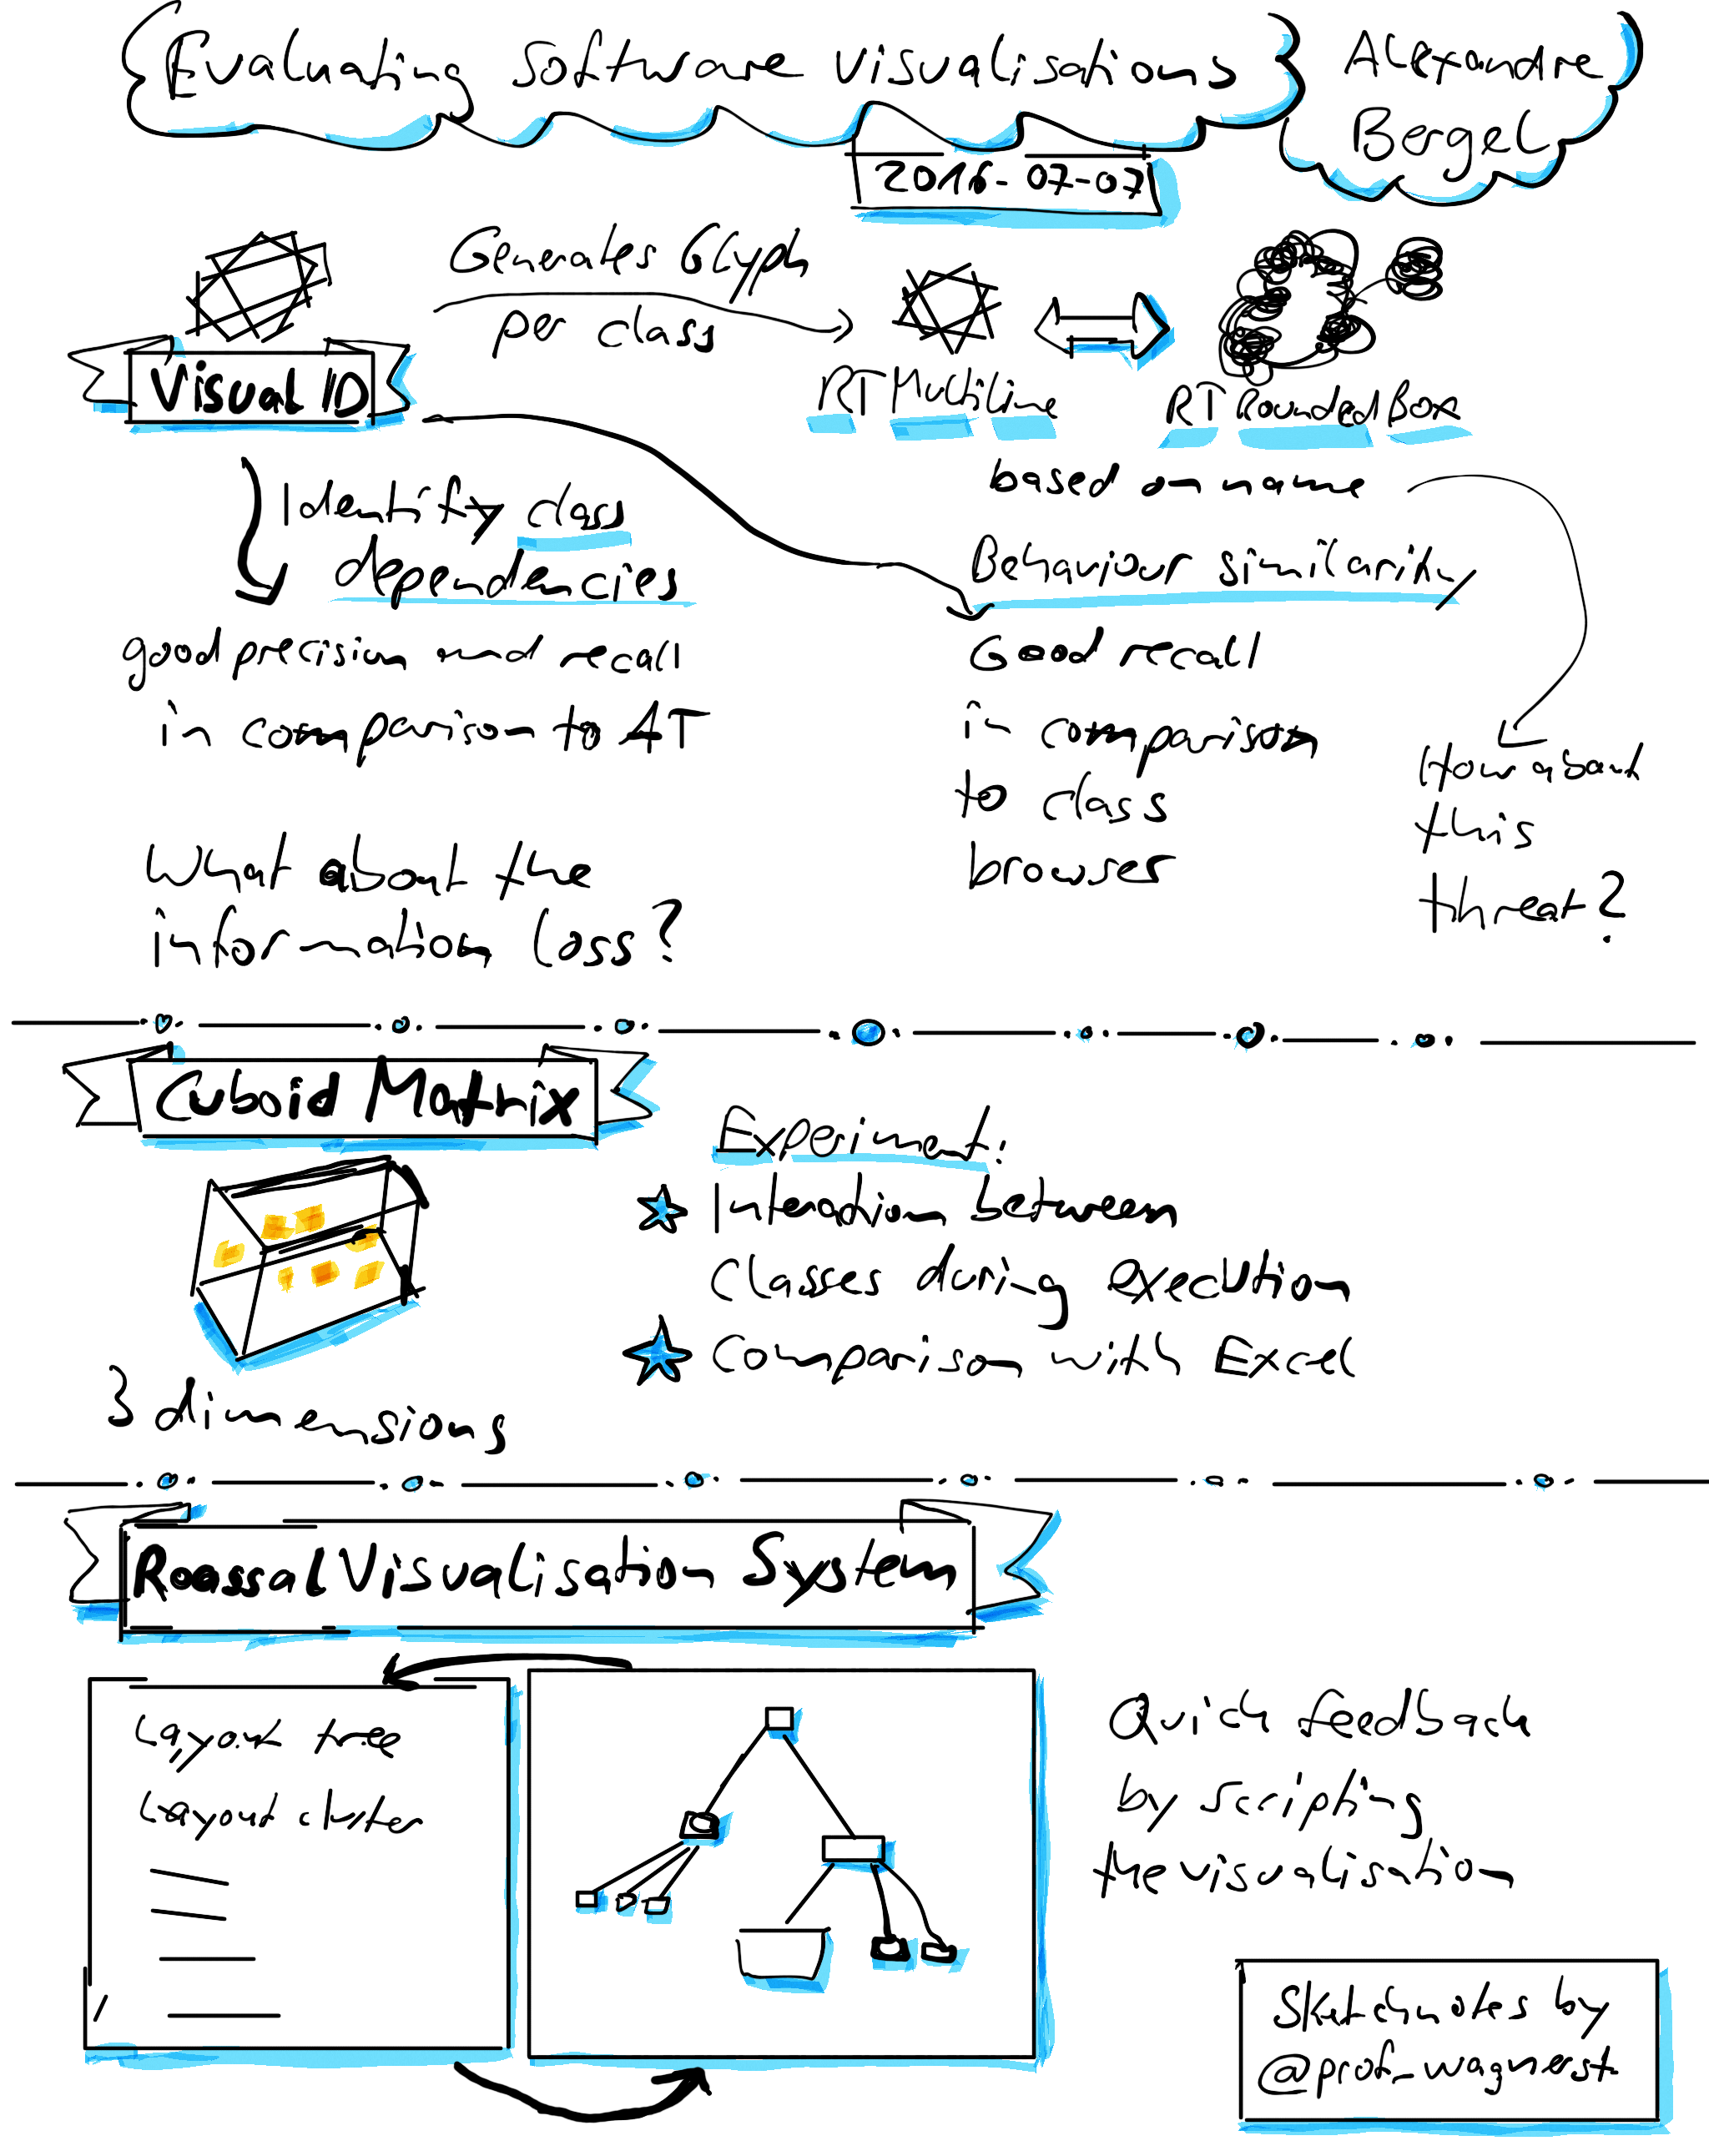 Evaluating Software Visualisations
Alexandre
Bergel
2016-07-07
Generates Glyph
per class
Visual ID
RTMultiLine
RTRoundedBox
based on name
Identify class
dependencies
good precision and recall
in comparison to AT
What about the
information loss?
Behaviour similarity
Good recall
in comparison
to class
browser
How about
this
threat?
Cuboid Matrix
3 dimensions
Experiment:
Interaction between
Classes during execution
Comparison with Excel
Roassal Visualisation System
Layout tree
Layout cluster
Quick feedback
by scripting
the visualisation
Sketchnotes by
@prof_wagnerst